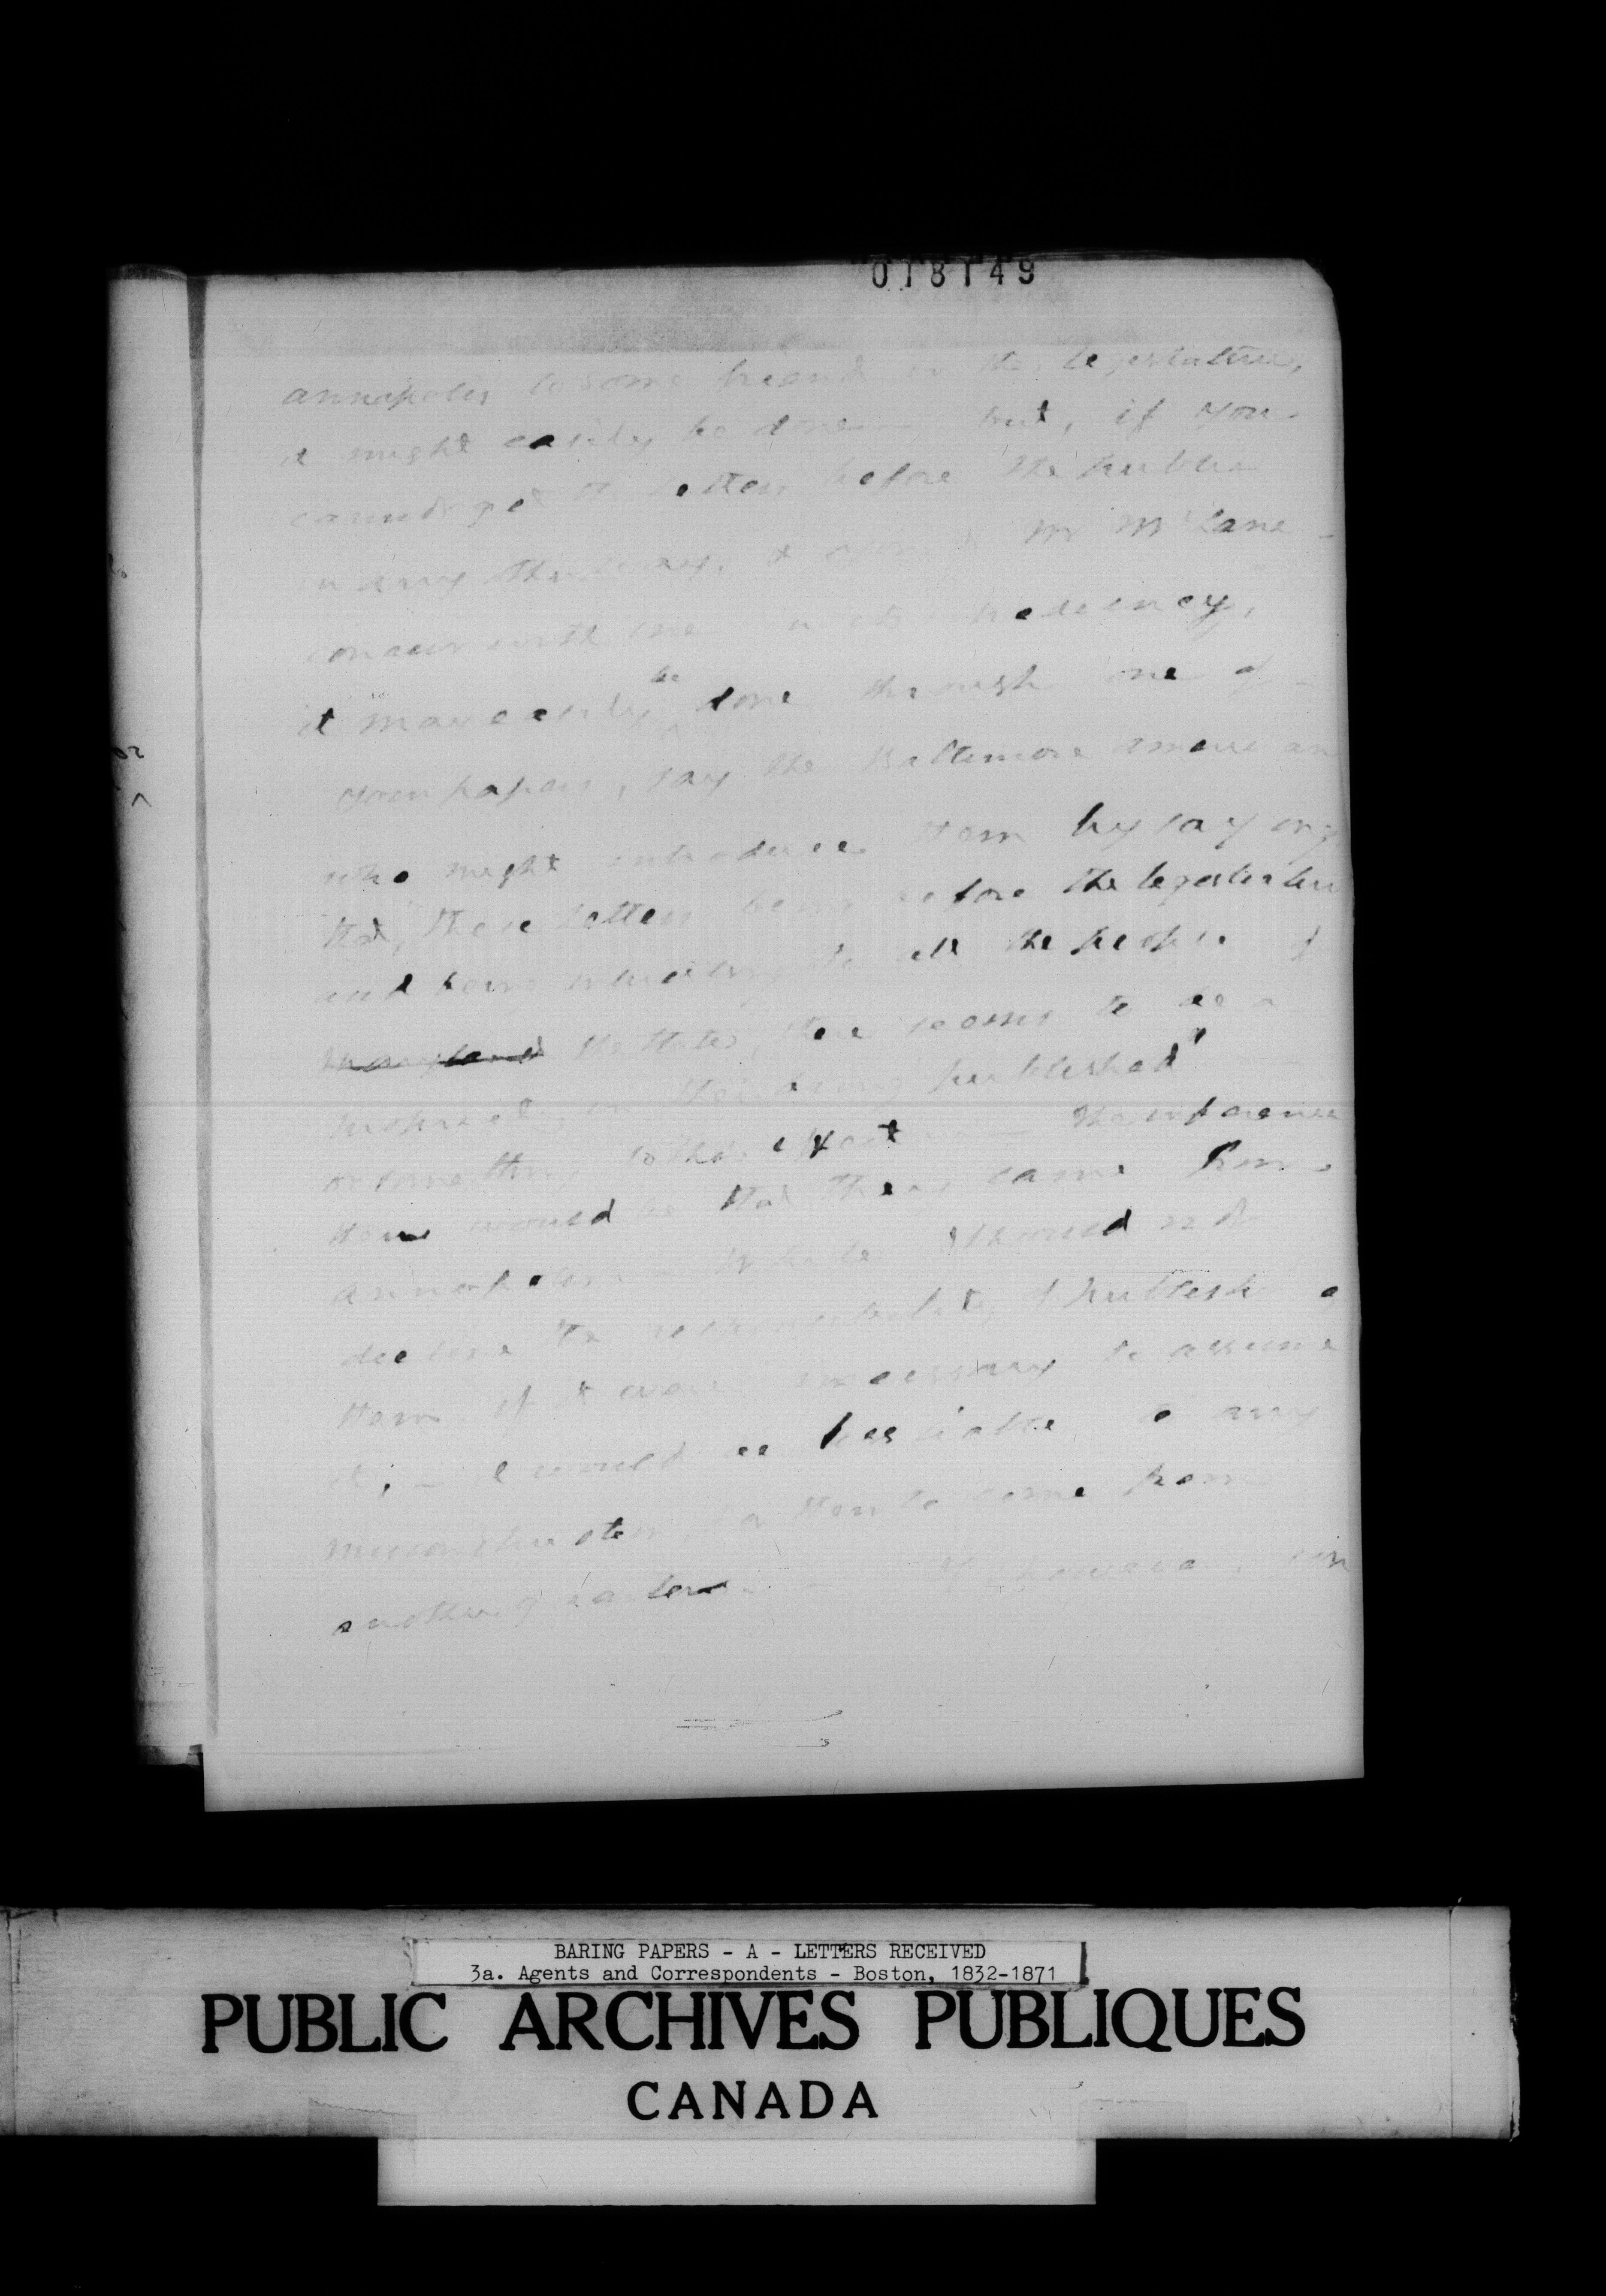 018149
annapolis to some friend in the legislature,
it might easily be done —, but, if you
cannot get the letters before the public
in any other way, & Mr McLane
concur with me in its expediency,
it may easily be done through one of
your papers, say the Baltimore American
who might introduce them by saying
that, "these letters being before the legislature
and being interesting to all the people of
Maryland the State, there seems to be a
propriety in their being published"
or something to this effect — The inference
then would be that they came from
annapolis. — While I should not
decline the responsibility of publishing
them, if it were necessary to assume
it, — I would be less liable to any
misconstruction for them to come from
another quarter. — If however,
BARING PAPERS - A - LETTERS RECEIVED
3a. Agents and Correspondents - Boston, 1832-1871
PUBLIC ARCHIVES PUBLIQUES
CANADA